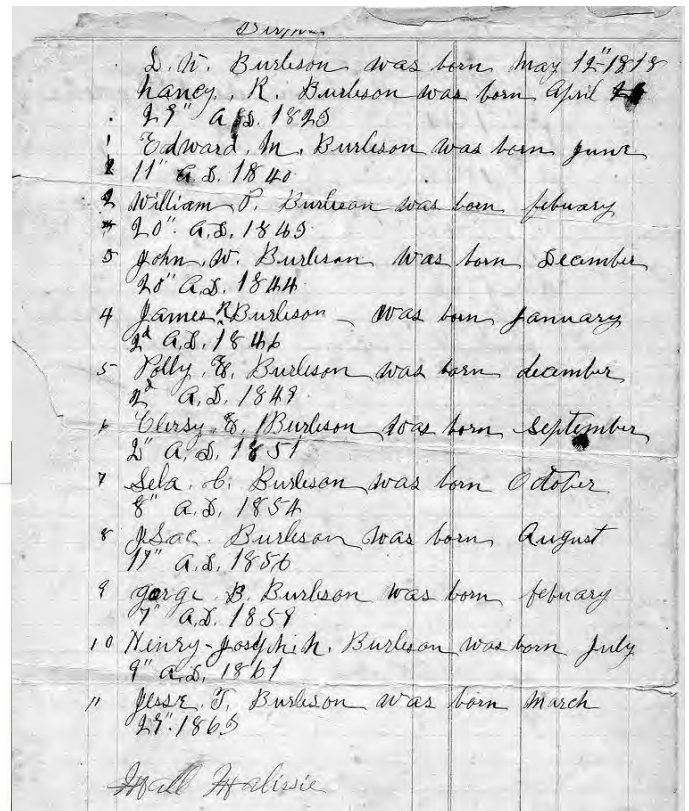 D. W. Burleson was born May 12" 1818
Nancy. R. Burleson was born April
29" A.D. 1825
1 Edward. M. Burleson was born June
2 11" A.D. 1840
2 William P. Burleson was born febuary
20". A.D. 1843
3 John. W. Burleson was born December
20" A.D. 1844
4 James R Burleson was born January
2d A.D. 1846
5 Polly. E. Burleson was born december
2d A.D. 1849
6 Burleson was born September
2" A.D. 1851
7 Sela. C. Burleson was born October
8" A.D. 1854
8 Isac. Burleson was born August
17" A.D. 1856
9 gorge. B. Burleson was born febuary
7" A.D. 1859
10 Henry-Joseph. N. Burleson was born July
9" A.D. 1861
11 Jesse. T. Burleson was born March
29". 1865